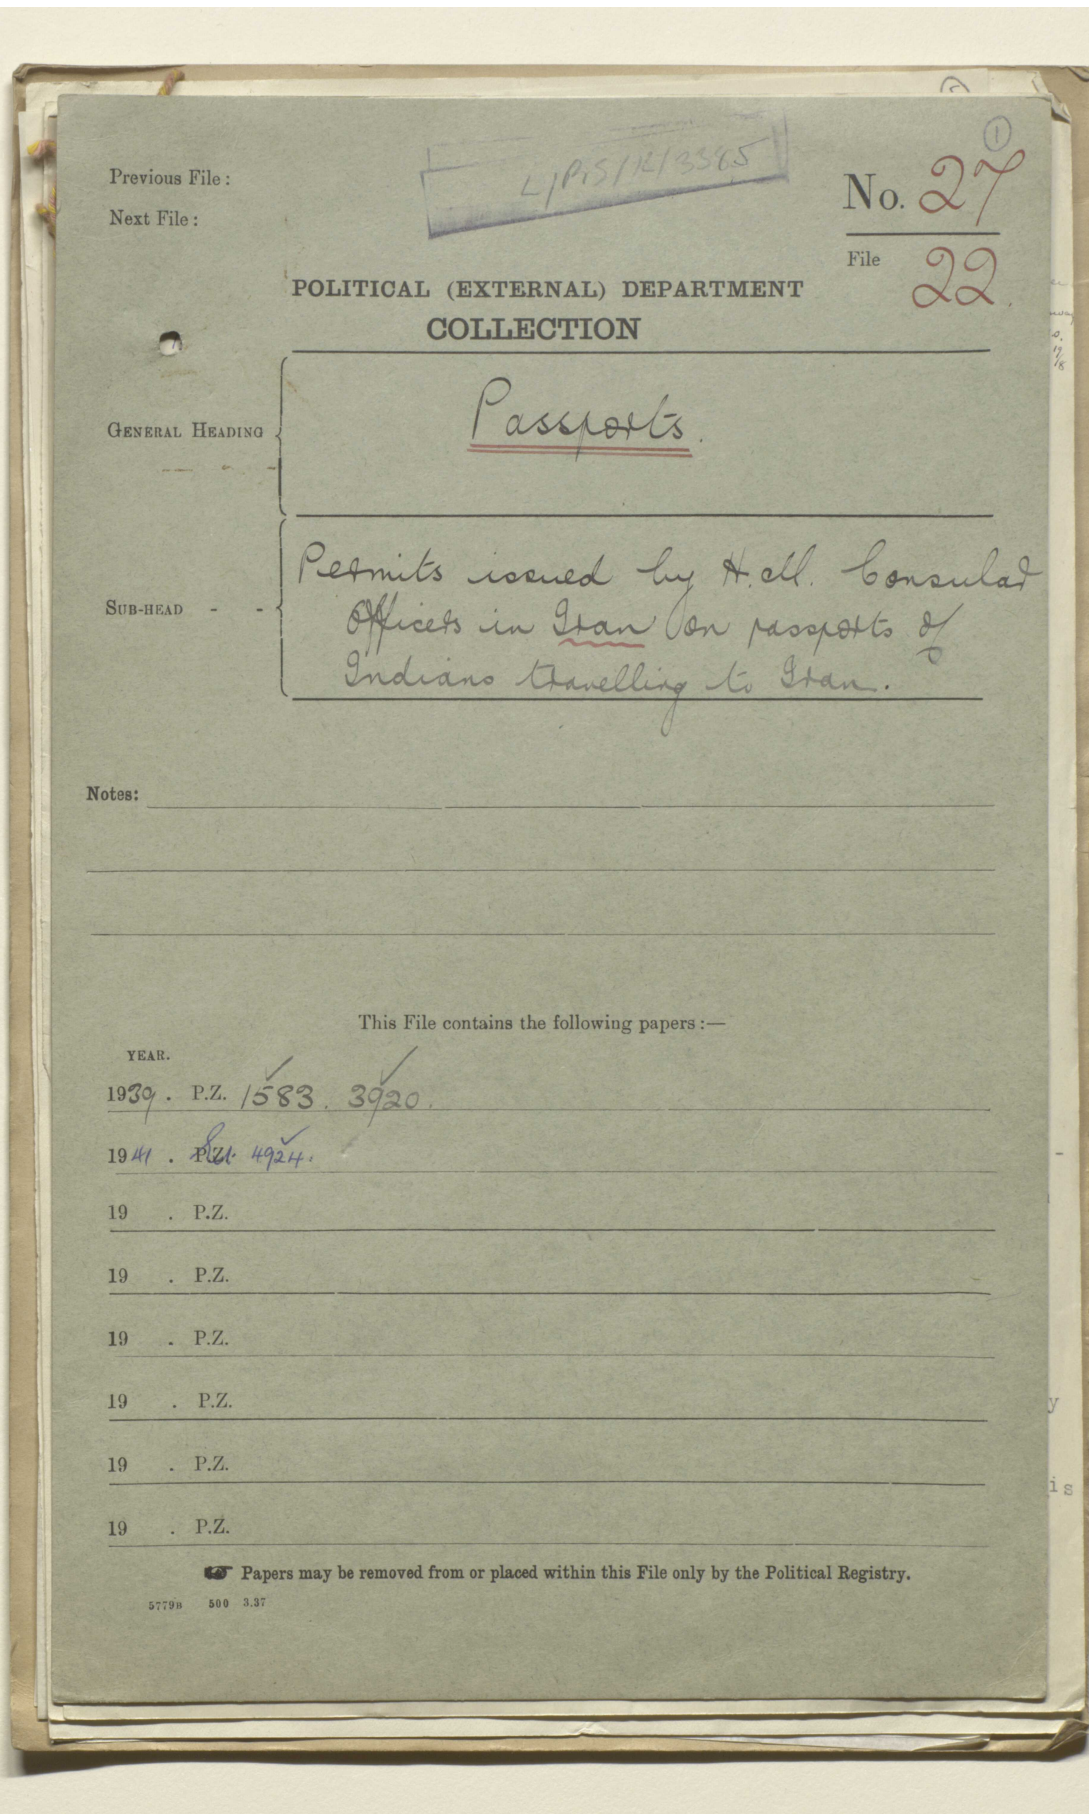 1
L/P&S/12/3385
Previous File :
No. 27
Next File :
File 22.
POLITICAL (EXTERNAL) DEPARTMENT
COLLECTION
GENERAL HEADING
Passports.
Permits issued by H.M. Consular
SUB-HEAD - -
Officers in Iran on passports of
Indians travelling to Iran.
Notes:
This File contains the following papers :—
YEAR.
1939 . P.Z. 1583. 3920.
1941 . P.Z. 4924.
19 . P.Z.
19 . P.Z.
19 . P.Z.
19 . P.Z.
19 . P.Z.
19 . P.Z.
☛ Papers may be removed from or placed within this File only by the Political Registry.
5779B 500 3.37
y
is